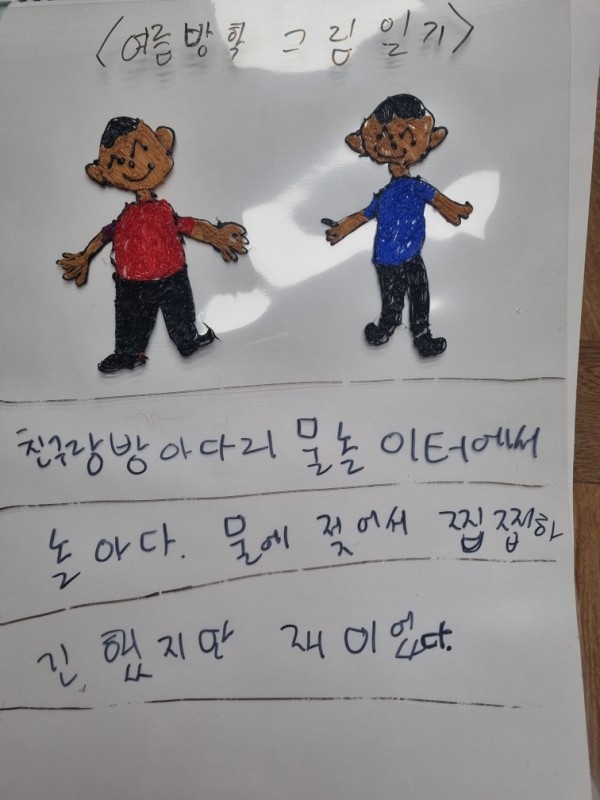 <여름방학 그림일기>
친구랑방아다리 물놀이터에서
놀아다. 물에 젖어서 찝찝하
긴 했지만 재미있다.